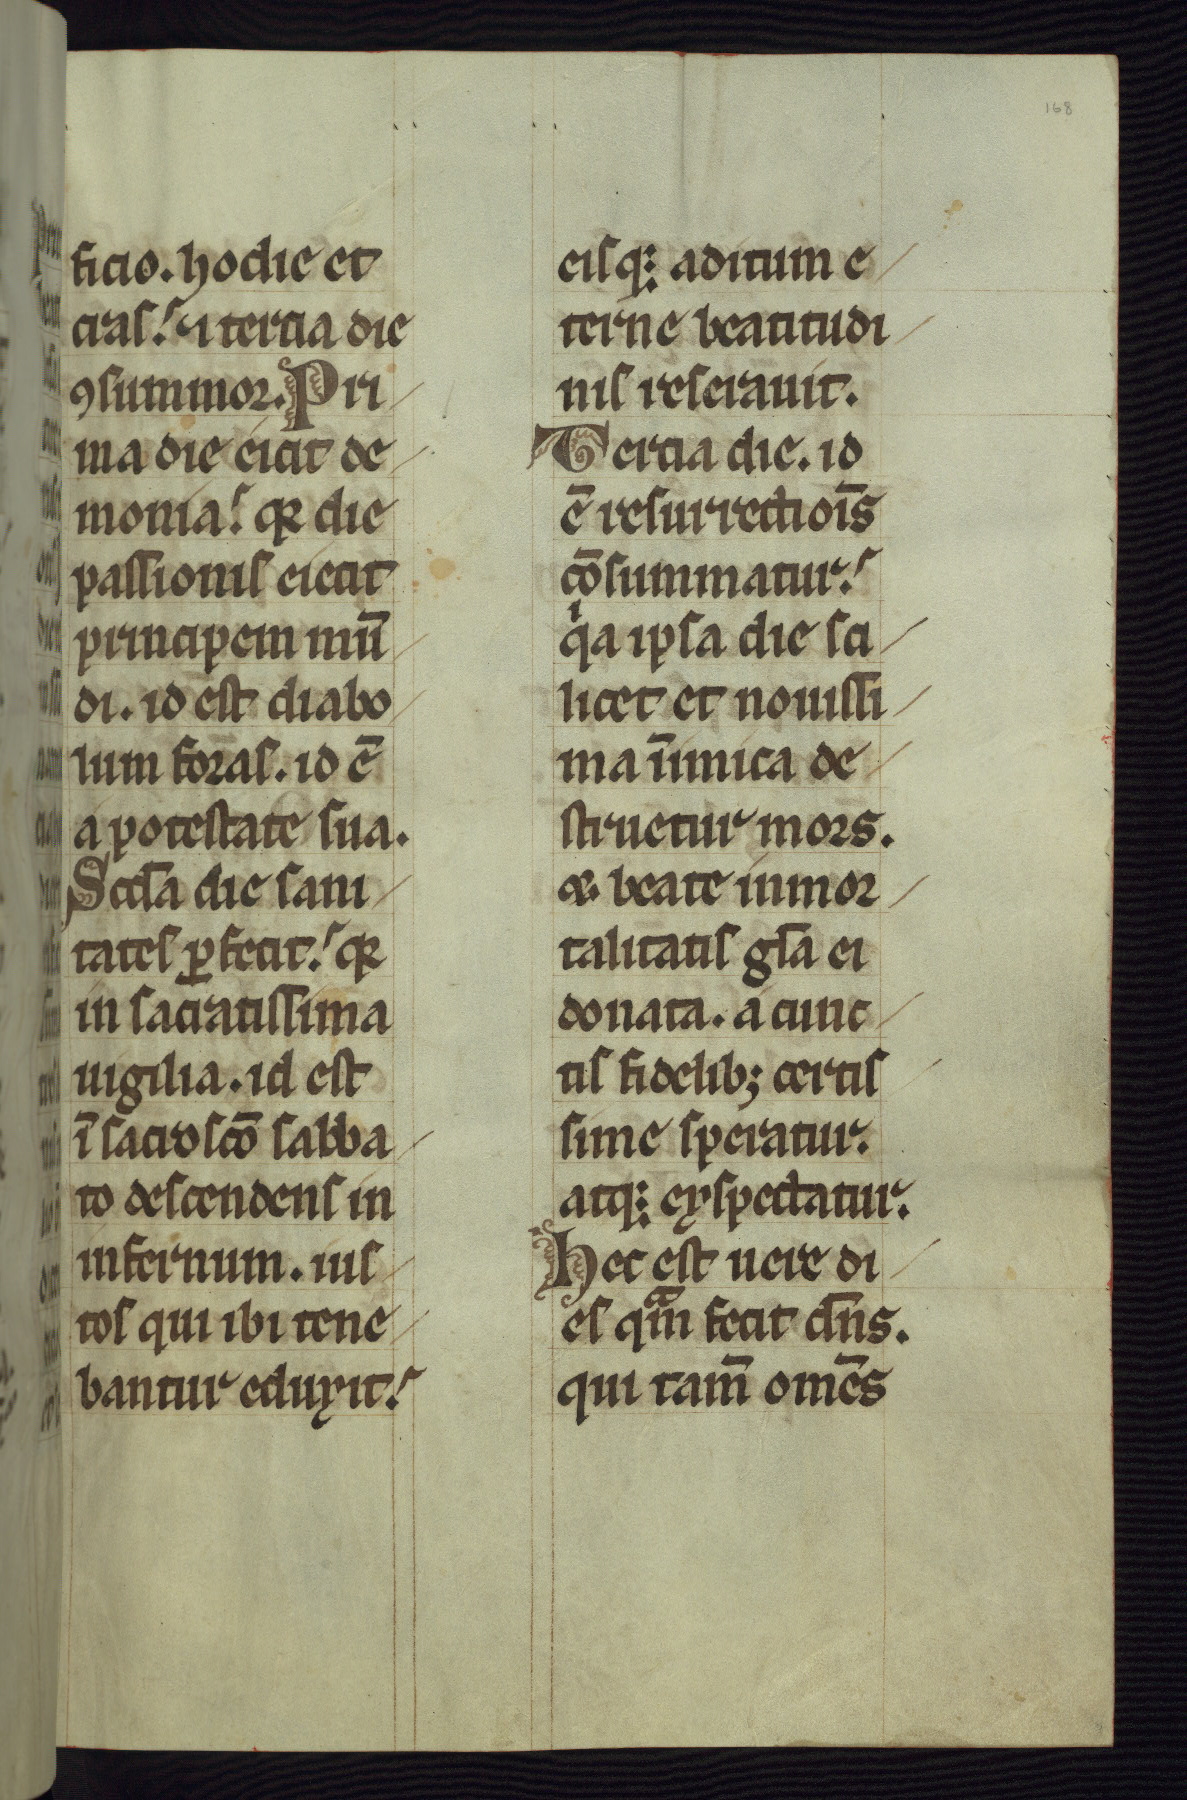 168
ficio. hodie et
cras! ⁊ i tercia die
ꝯsummor. Pri
ma die eicit de
monia! qꝛ die
passionis eiecit
principem mū
di. id est diabo
lum foras. id ē
a potestate sua.
Scd̄a die sani
tates ꝑfecit! qꝛ
in sacratissima
uigilia. id est
ī sacrosc̄o sabba
to descendens in
infernum. ius
tos qui ibi tene
bantur eduxit!
eisqꝫ aditum e
terne beatitudi
nis reserauit.
Tercia die. id
ē resurrectiois̄
cōsummatur!
qⁱa ipsa die sci
licet et nouissi
ma īimica de
struetur mors.
⁊ beate inmor
talitatis gl̄a ei
donata. a cunc
tis fidelibꝫ certis
sime speratur.
atqꝫ exspectatur.
Hec est uere di
es qᵃm fecit dn̄s.
qui tam̄ om̄es